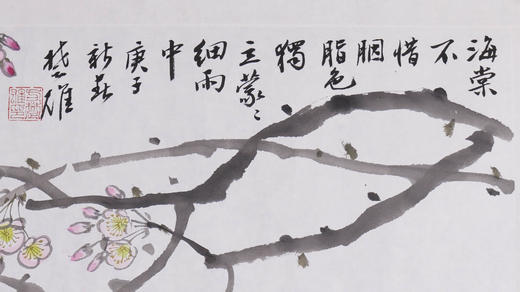 海棠
不
惜
胭
脂色
獨
立蒙〻
细雨
中
庚子
新春
楚雄